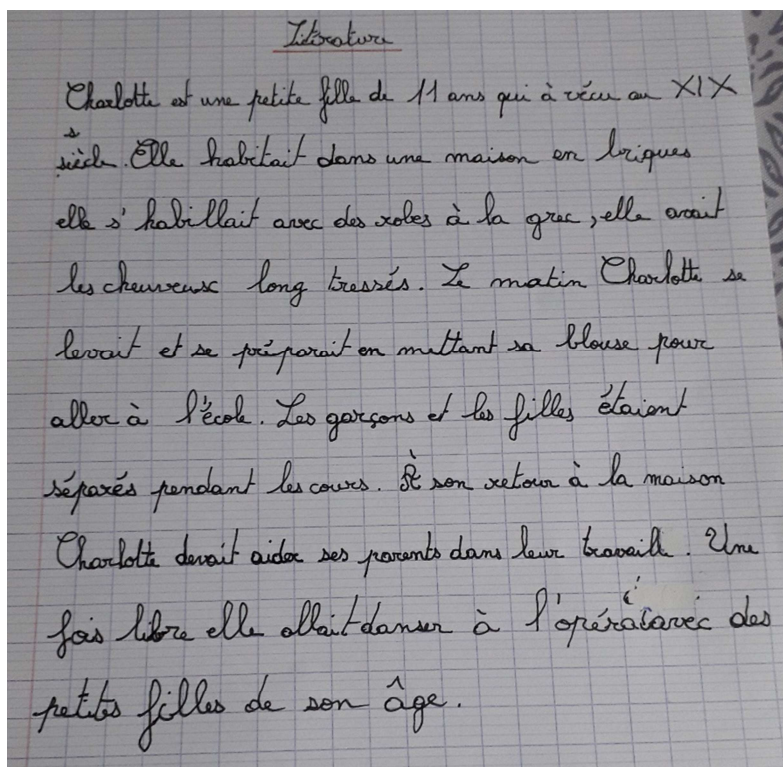 Literature
Charlotte est une petite fille de 11 ans qui à vécu au XIX
siècle. Elle habitait dans une maison en briques
elle s'habillait avec des robes à la grec, elle avait
les cheuveux long tressés. Le matin Charlotte se
levait et se préparait en mettant sa blouse pour
aller à l'école. Les garçons et les filles étaient
séparés pendant les cours. À son retour à la maison
Charlotte devait aider ses parents dans leur travaille. Une
fois libre elle allait danser à l'opéra avec des
petites filles de son âge.